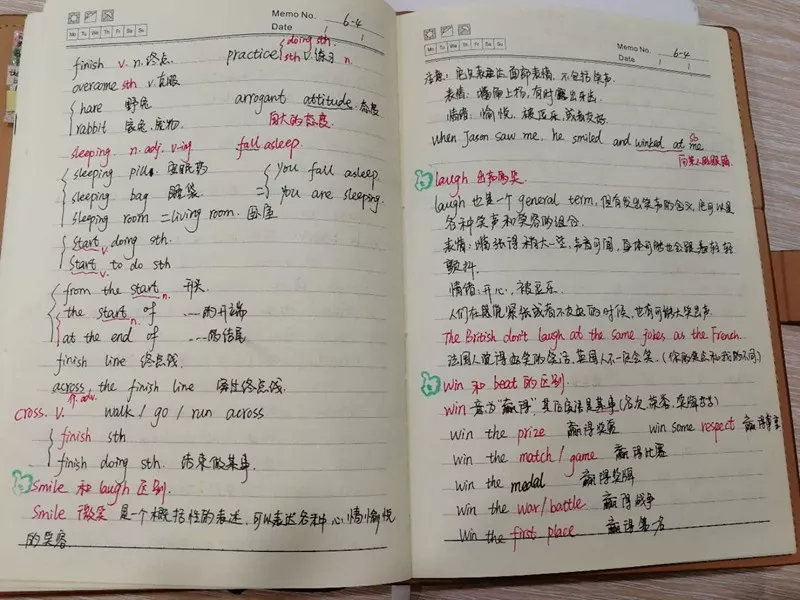 Memo No. 6-4
Mo Tu We Th Fr Sa Su
Date / /
finish v. n. 终点
practice { doing sth.
sth v. 练习 n.
overcome sth v. 克服
{ hare 野兔
rabbit 家兔, 宠物
arrogant attitude 态度
自大的态度
sleeping n. adj. v-ing
fall asleep.
{ sleeping pill 安眠药
sleeping bag 睡袋
sleeping room = living room 卧室
=> { You fall asleep
You are sleeping.
{ Start v. doing sth.
Start v. to do sth
{ from the start n. 开头
the start n. of ……的开端
at the end of ……的结尾
finish line 终点线
across the finish line 穿过终点线
介. adv.
cross. v. walk / go / run across
{ finish sth
finish doing sth. 结束做某事.
Smile 和 laugh 区别.
Smile 微笑 是一个概括性的表述, 可以表达各种心情愉悦
的笑容
Memo No. 6-4
Mo Tu We Th Fr Sa Su
Date / /
表情: 嘴角上扬, 有时露出牙齿
情绪: 愉悦, 被逗乐, 或者友好
when Jason saw me, he smiled and winked at me
laugh 出声的笑.
laugh 也是一个 general term, 但有发出笑声的含义, 也可以是
各种笑声和笑容的组合.
颤抖.
情绪: 开心, 被逗乐.
人们在感觉紧张或者不友善的时候, 也有可能大笑出声.
The British don't laugh at the same jokes as the French.
法国人觉得好笑的笑话, 英国人不一定会笑. (你的笑点和我的不同)
win 和 beat 的区别.
win 意为"赢得", 其后宾语是某事 (名次, 荣誉, 奖牌等)
win the prize 赢得奖赛
win some respect 赢得尊重
win the match / game 赢得比赛
win the medal 赢得奖牌
win the war/battle 赢得战争
win the first place 赢得第一名